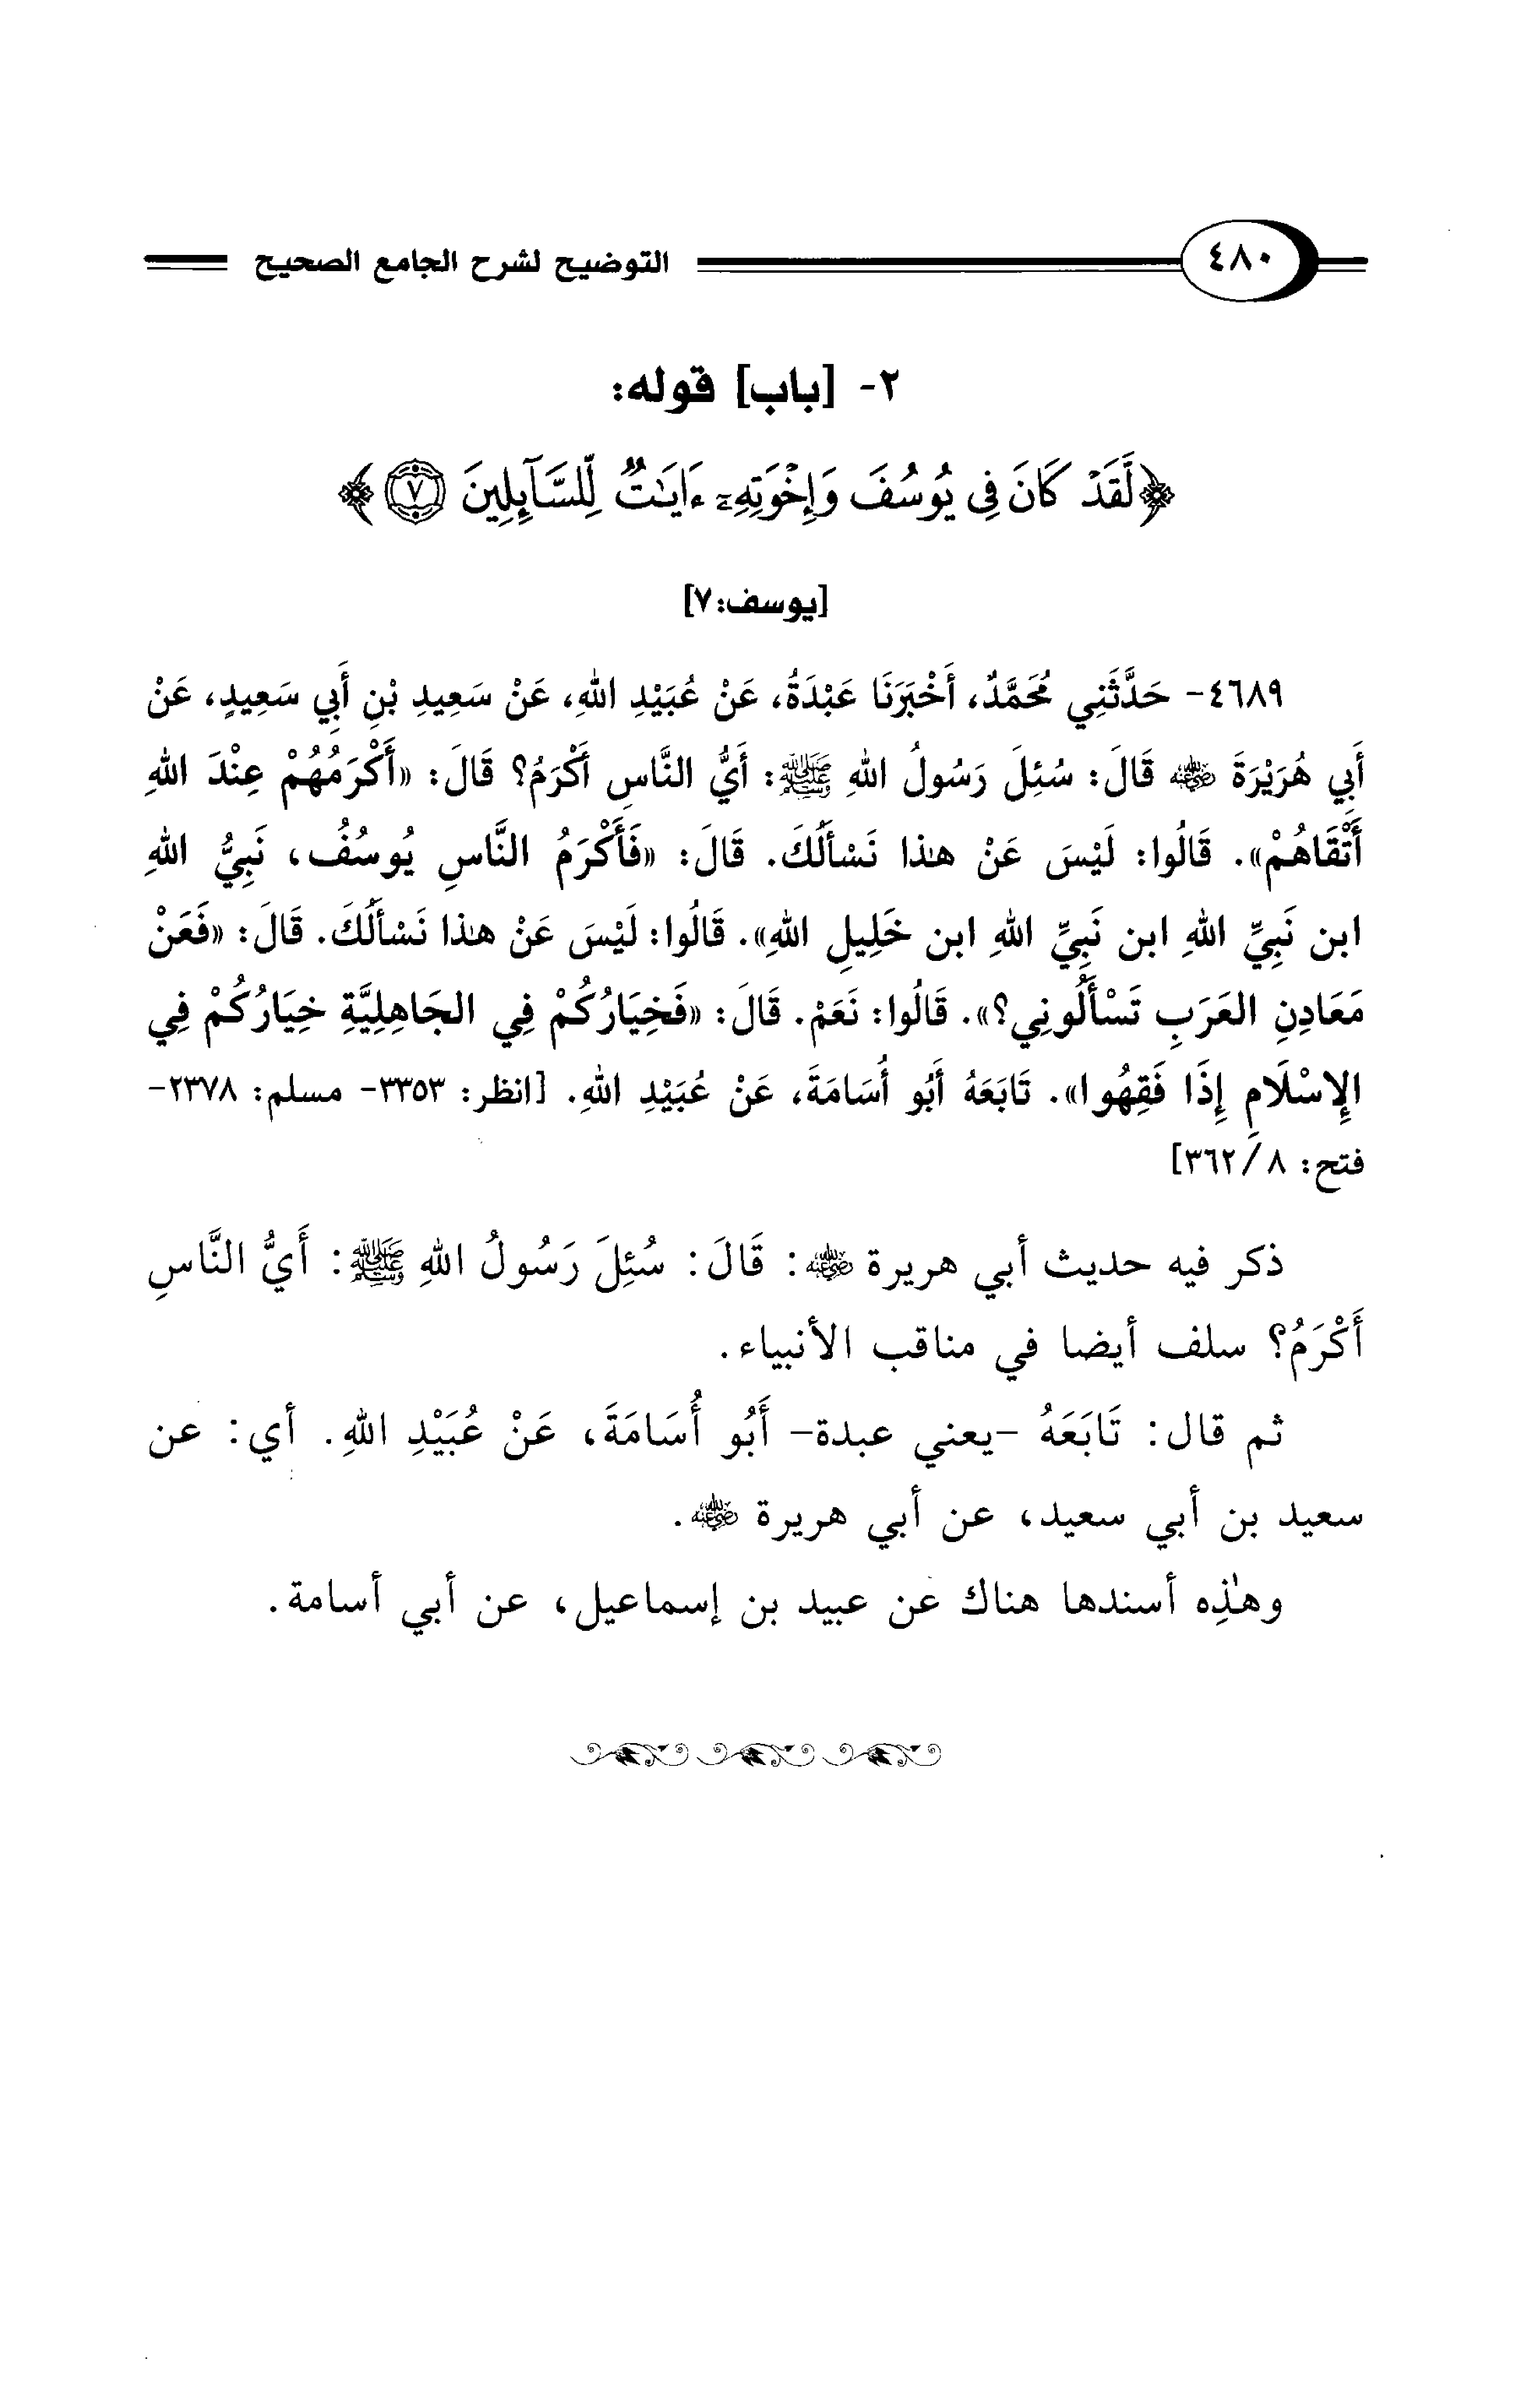 ٤٨٠ التوضيح لشرح الجامع الصحيح
٢- [باب] قوله:
﴿لَّقَدۡ كَانَ فِي يُوسُفَ وَإِخۡوَتِهِۦٓ ءَايَٰتٞ لِّلسَّآئِلِينَ ٧﴾
[يوسف:٧]
٤٦٨٩- حَدَّثَنِي مُحَمَّدٌ، أَخْبَرَنَا عَبْدَةُ، عَنْ عُبَيْدِ اللهِ، عَنْ سَعِيدِ بْنِ أَبِي سَعِيدٍ، عَنْ
أَبِي هُرَيْرَةَ رضي الله عنه قَالَ: سُئِلَ رَسُولُ اللهِ ﷺ: أَيُّ النَّاسِ أَكْرَمُ؟ قَالَ: «أَكْرَمُهُمْ عِنْدَ اللهِ
أَتْقَاهُمْ». قَالُوا: لَيْسَ عَنْ هذا نَسْأَلُكَ. قَالَ: «فَأَكْرَمُ النَّاسِ يُوسُفُ، نَبِيُّ اللهِ
ابن نَبِيِّ اللهِ ابن نَبِيِّ اللهِ ابن خَلِيلِ اللهِ». قَالُوا: لَيْسَ عَنْ هذا نَسْأَلُكَ. قَالَ: «فَعَنْ
مَعَادِنِ العَرَبِ تَسْأَلُونِي؟». قَالُوا: نَعَمْ. قَالَ: «فَخِيَارُكُمْ فِي الجَاهِلِيَّةِ خِيَارُكُمْ فِي
الإِسْلَامِ إِذَا فَقِهُوا». تَابَعَهُ أَبُو أُسَامَةَ، عَنْ عُبَيْدِ اللهِ. [انظر: ٣٣٥٣- مسلم: ٢٣٧٨-
فتح: ٨/ ٣٦٢]
ذكر فيه حديث أبي هريرة رضي الله عنه: قَالَ: سُئِلَ رَسُولُ اللهِ ﷺ: أَيُّ النَّاسِ
أَكْرَمُ؟ سلف أيضا في مناقب الأنبياء.
ثم قال: تَابَعَهُ -يعني عبدة- أَبُو أُسَامَةَ، عَنْ عُبَيْدِ اللهِ. أي: عن
سعيد بن أبي سعيد، عن أبي هريرة رضي الله عنه.
وهٰذِه أسندها هناك عن عبيد بن إسماعيل، عن أبي أسامة.